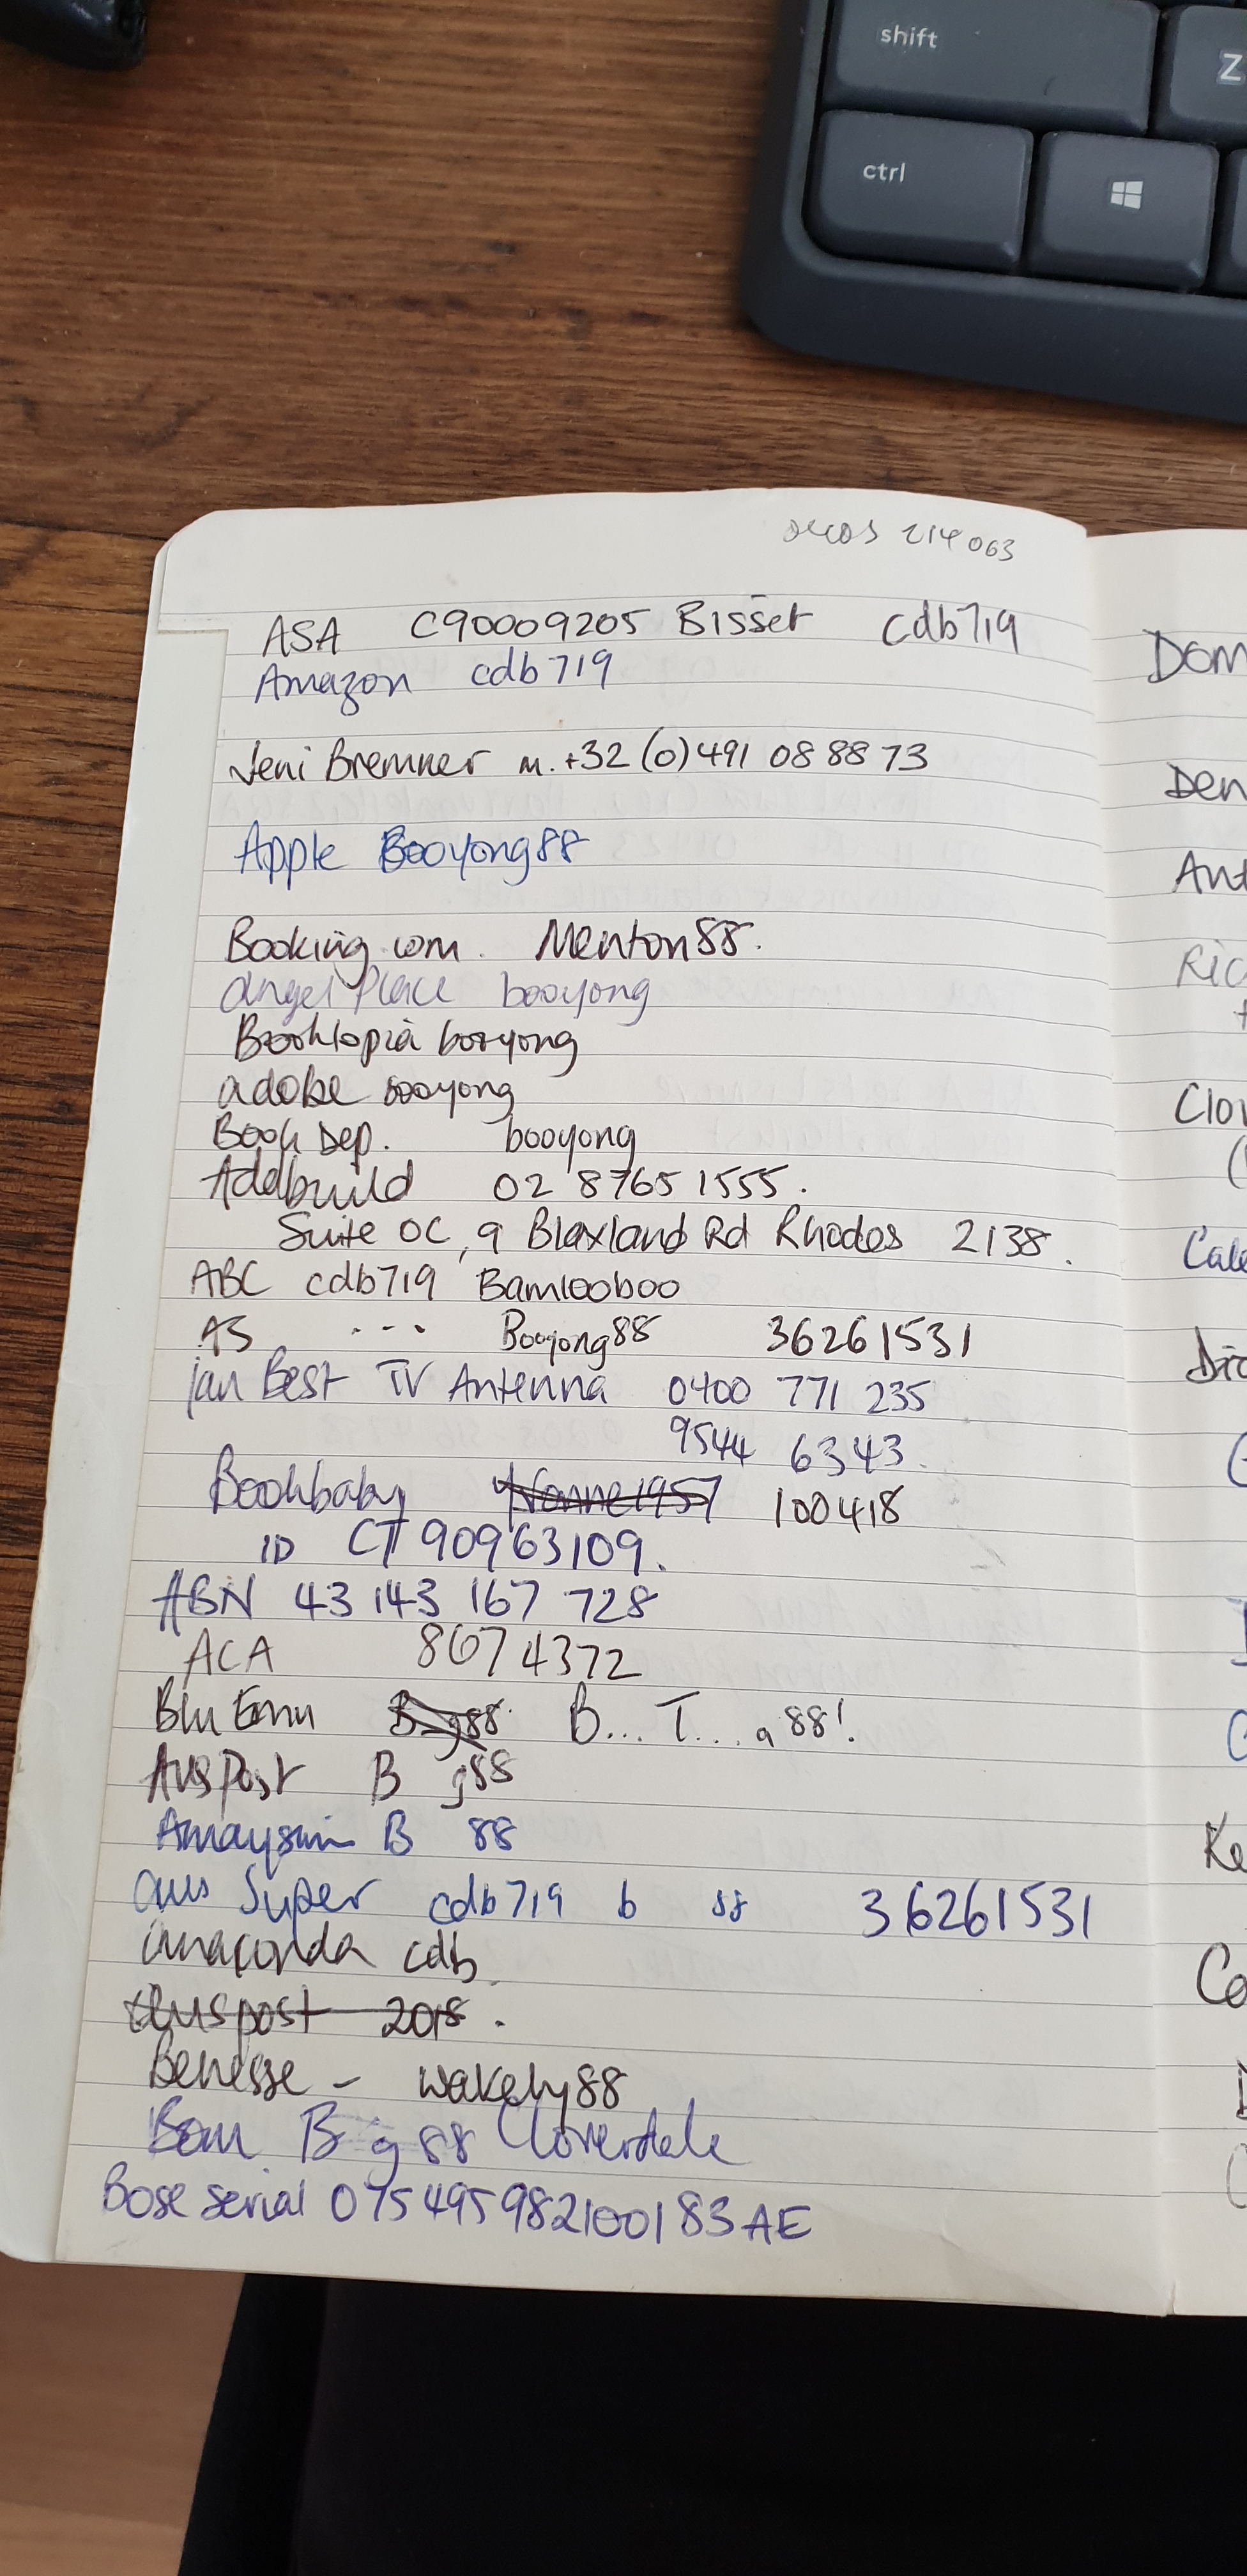 shift
Z
ctrl
214063
ASA C90009205 Bisset cdb719
Amazon cdb719
Jeni Bremner m. +32 (0) 491 08 88 73
Apple Booyong88
Booking.com. Menton88.
Angel Place booyong
Booktopia booyong
adobe booyong
Book Dep. booyong
Addbuild 02 8765 1555.
Suite 0C, 9 Blaxland Rd Rhodes 2138.
ABC cdb719 Bamlooboo
AS ... Booyong88 36261531
Ian Best TV Antenna 0400 771 235
9544 6343.
Bookbaby Yvonne1957 100418
ID CT90963109.
ABN 43 143 167 728
ACA 8674372
Blu Emu B g88 B... T.... a 88!
AusPost B g88
Amaysim B 88
aus Super cdb719 b 88 36261531
anaconda cdb
auspost 2018.
Benesse - wakely88
Bom B g 88 Cloverdale
Bose serial 075495982100183AE
Dom
Den
Ant
Ric
Clov
(
Cale
Ke
Co